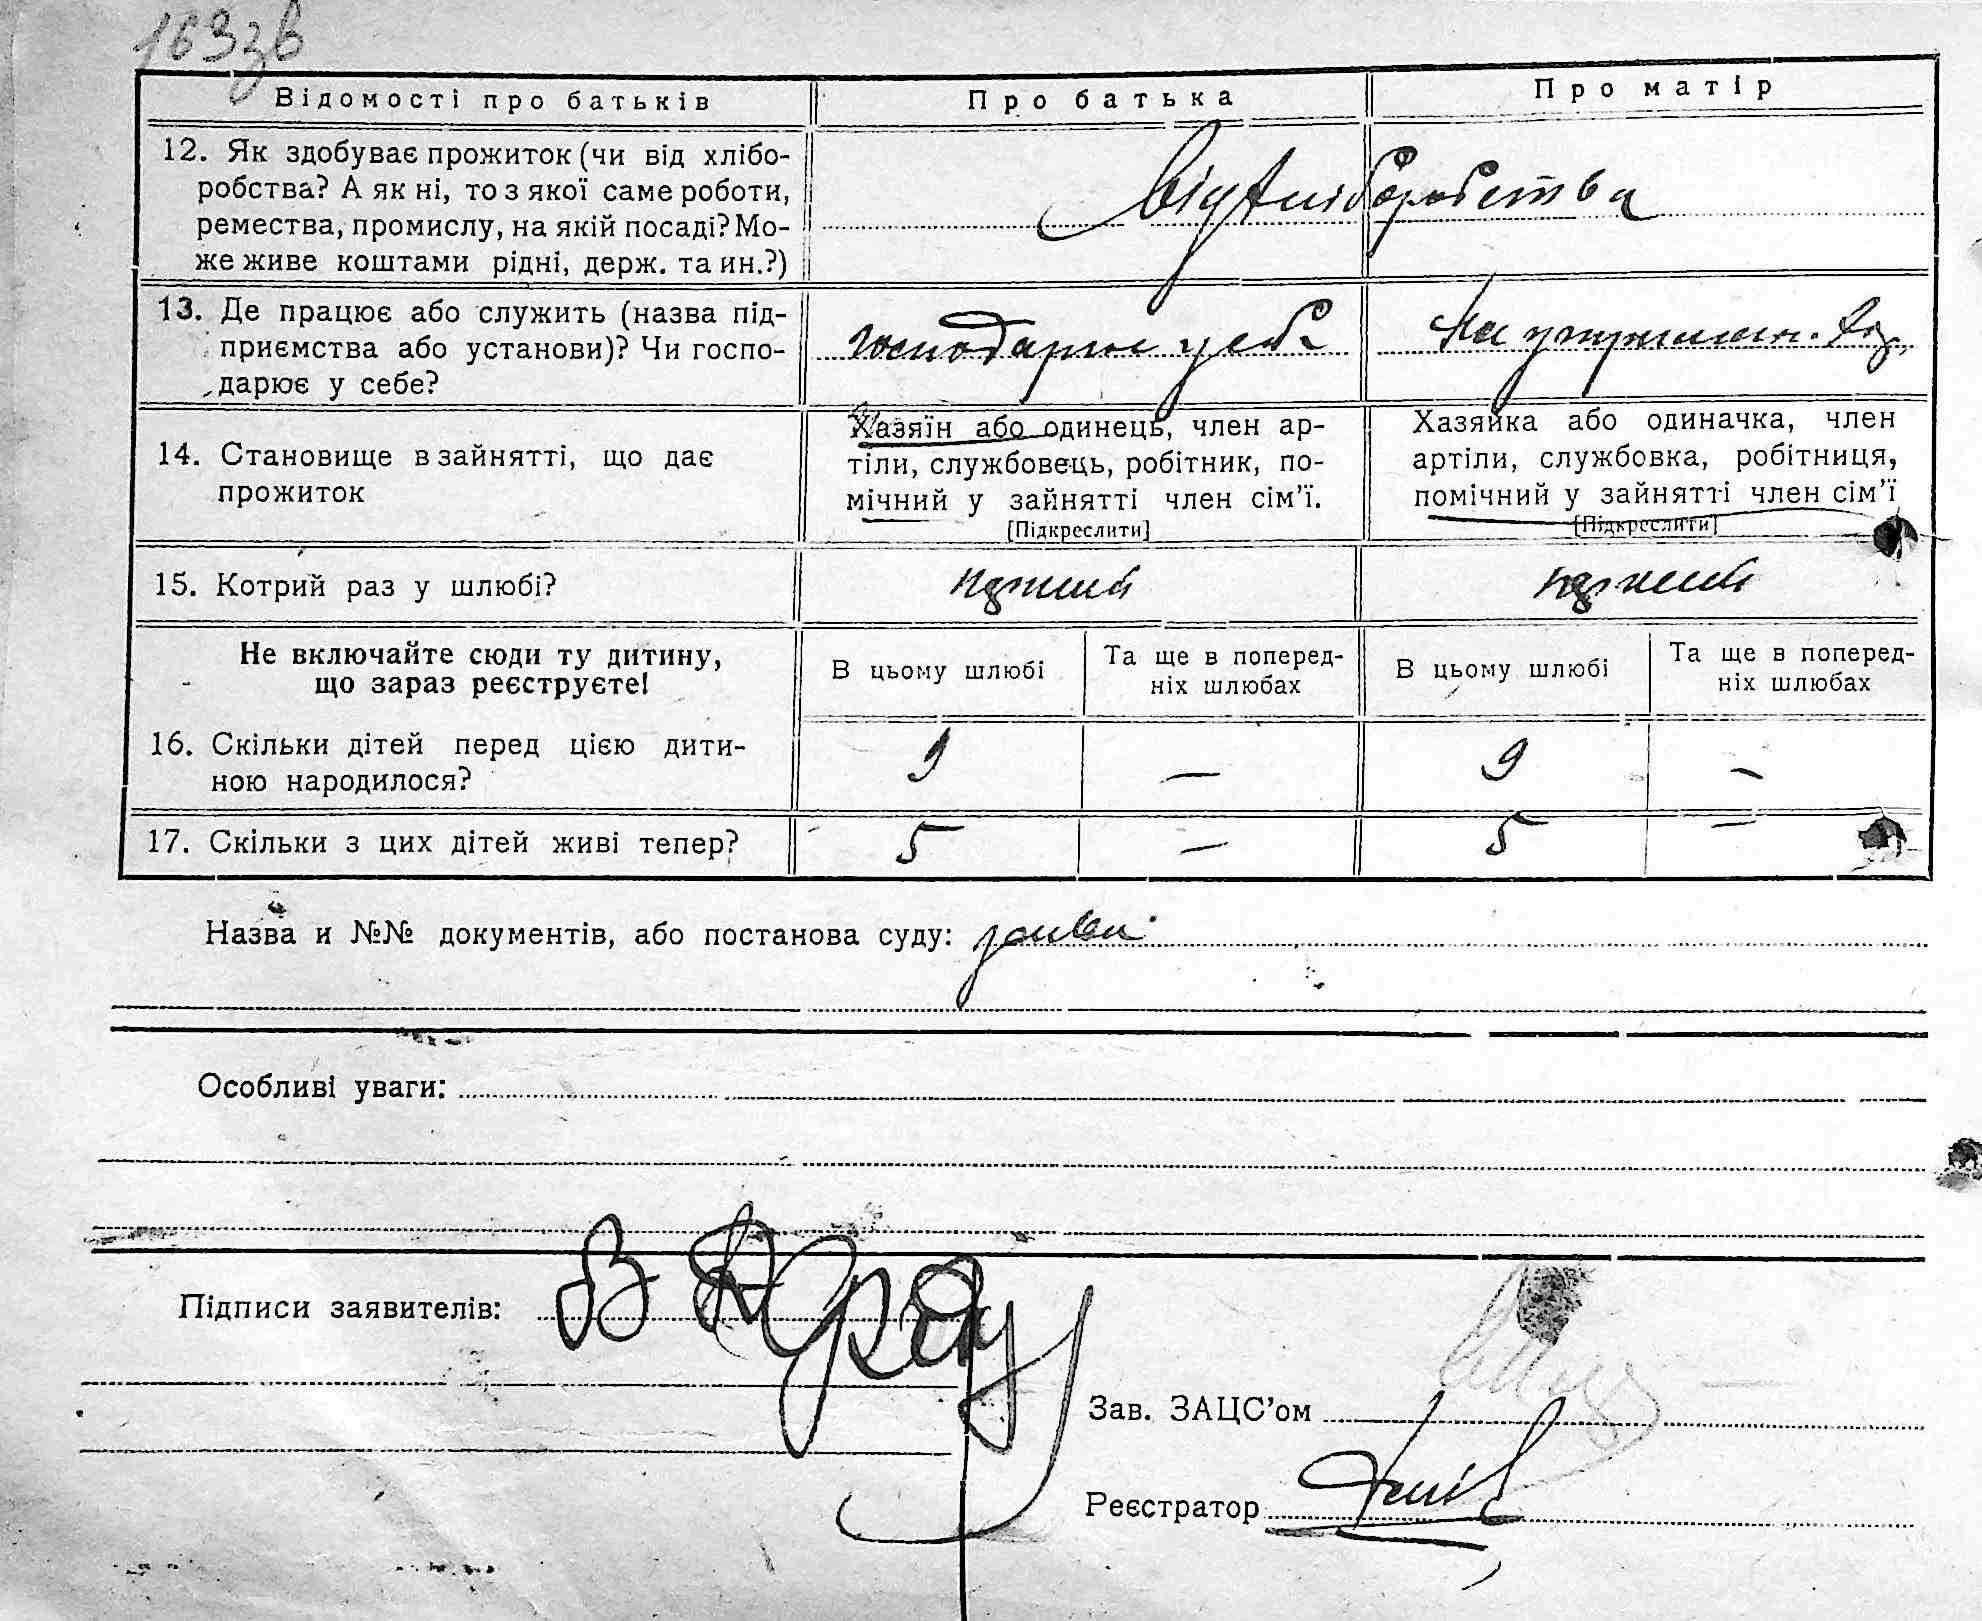 163зв
Відомості про батьків
Про батька
Про матір
12. Як здобуває прожиток (чи від хлібо-
робства? А як ні, то з якої саме роботи,
ремества, промислу, на якій посаді? Мо-
же живе коштами рідні, держ. та ин.?)
від хліборобства
13. Де працює або служить (назва під-
приємства або установи)? Чи госпо-
дарює у себе?
господарює у себе
на утриманн.
14. Становище в зайнятті, що дає
прожиток
Хазяїн або одинець, член ар-
тіли, службовець, робітник, по-
мічний у зайнятті член сім’ї.
[Підкреслити]
Хазяйка або одиначка, член
артіли, службовка, робітниця,
помічний у зайнятті член сім’ї
[Підкреслити]
15. Котрий раз у шлюбі?
перший
перший
Не включайте сюди ту дитину,
що зараз реєструєте!
В цьому шлюбі
Та ще в поперед-
ніх шлюбах
В цьому шлюбі
Та ще в поперед-
ніх шлюбах
16. Скільки дітей перед цією дити-
ною народилося?
9 — 9 —
17. Скільки з цих дітей живі тепер?
5 — 5 —
Назва и №№ документів, або постанова суду: заява
Особливі уваги:
Підписи заявителів:
Зав. ЗАЦС’ом
Реєстратор